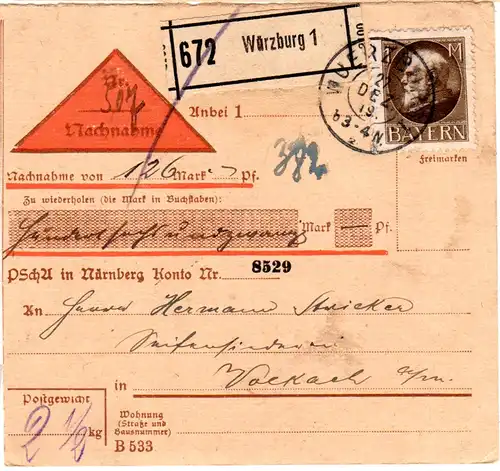 672 Würzburg 1
WUERZB
24
DEZ
19
b3-4N.
M
BAYERN
Freimarken
Nachnahme
Anbei 1
382
Nachnahme von 126 Mark — Pf.
Zu wiederholen (die Mark in Buchstaben):
Hundertsechsundzwanzig Mark — Pf.
PSchA in Nürnberg Konto Nr. 8529
An Herrn Hermann Stricker
Seifensiederei
in Volkach a/M.
Postgewicht
2 1/2 kg
Wohnung
(Straße und
Hausnummer)
B 533